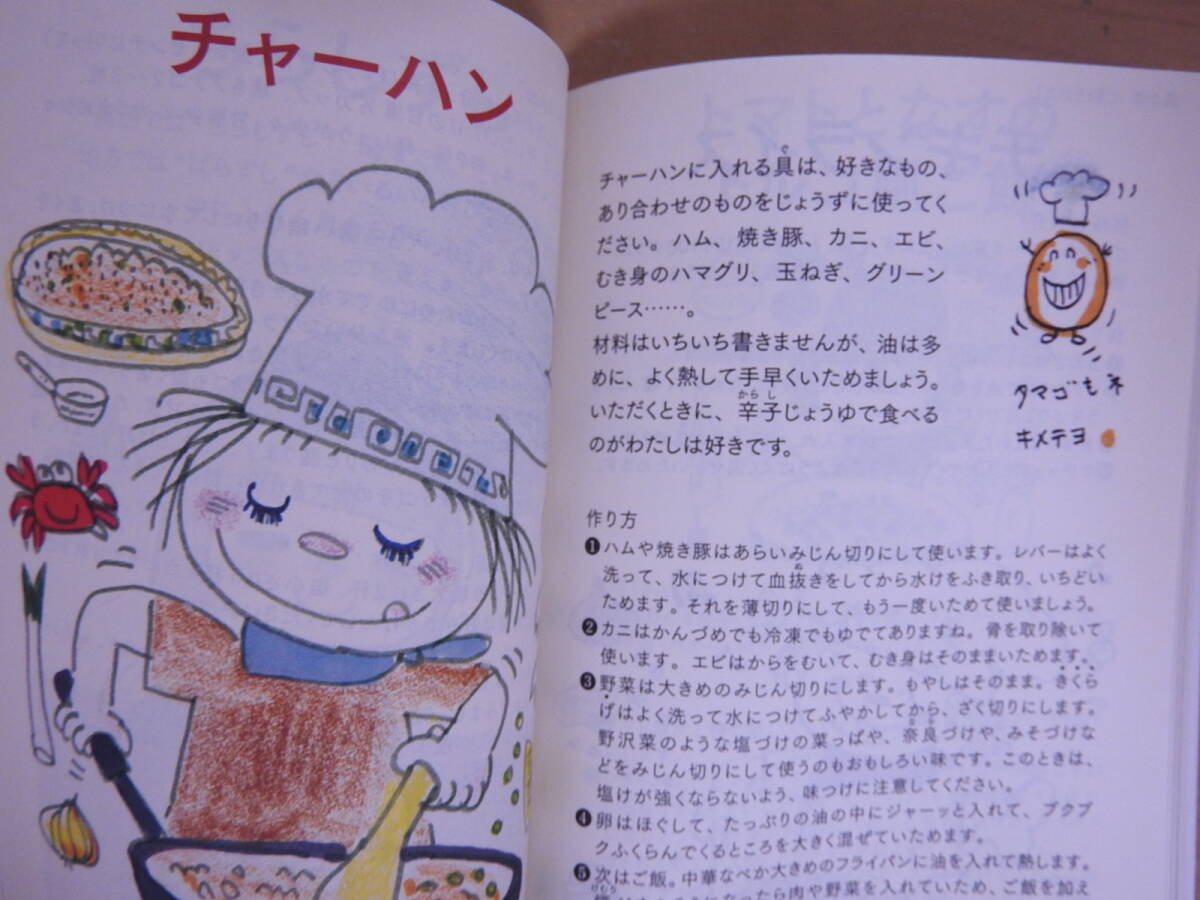 チャーハン
チャーハンに入れる具は、好きなもの、
あり合わせのものをじょうずに使ってく
ださい。ハム、焼き豚、カニ、エビ、
むき身のハマグリ、玉ねぎ、グリーン
ピース……。
材料はいちいち書きませんが、油は多
めに、よく熱して手早くいためましょう。
いただくときに、辛子じょうゆで食べる
のがわたしは好きです。
タマゴもネ
キメテヨ
作り方
❶ハムや焼き豚はあらいみじん切りにして使います。レバーはよく
洗って、水につけて血抜きをしてから水けをふき取り、いちどい
ためます。それを薄切りにして、もう一度いためて使いましょう。
❷カニはかんづめでも冷凍でもゆでてありますね。骨を取り除いて
使います。エビはからをむいて、むき身はそのままいためます。
❸野菜は大きめのみじん切りにします。もやしはそのまま。きくら
げはよく洗って水につけてふやかしてから、ざく切りにします。
野沢菜のような塩づけの菜っぱや、奈良づけや、みそづけな
どをみじん切りにして使うのもおもしろい味です。このときは、
塩けが強くならないよう、味つけに注意してください。
❹卵はほぐして、たっぷりの油の中にジャーッと入れて、ブクブ
クふくらんでくるところを大きく混ぜていためます。
❺次はご飯。中華なべか大きめのフライパンに油を入れて熱します。
になったら肉や野菜を入れていため、ご飯を加え